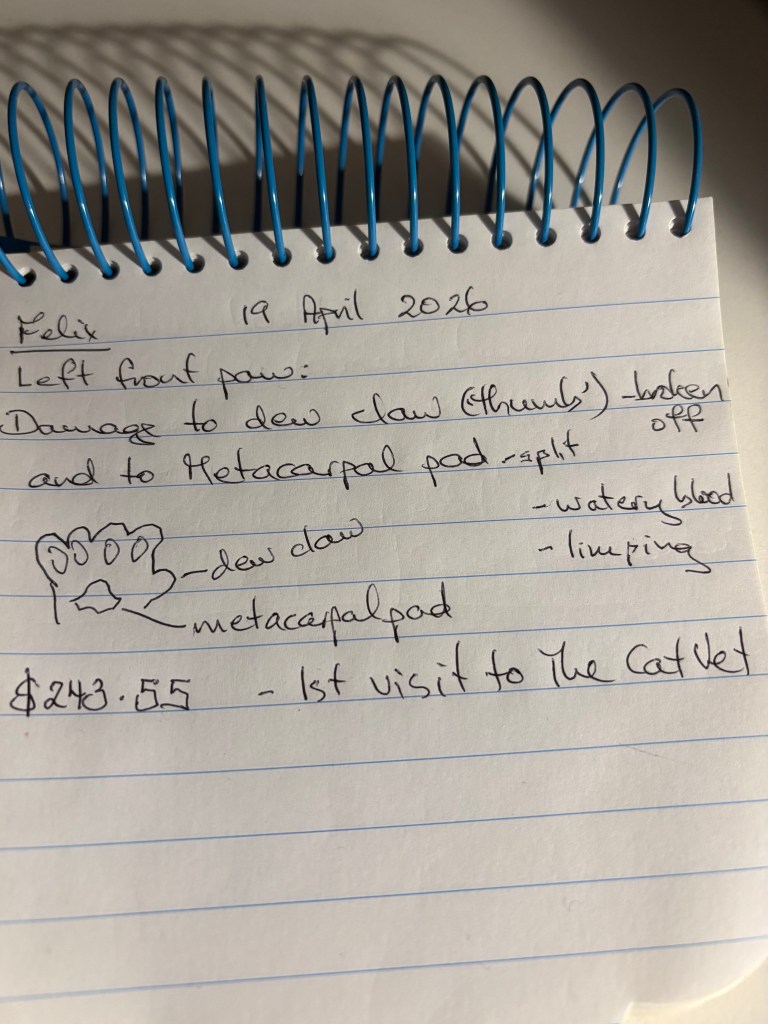 Felix 19 April 2026
Left front paw:
Damage to dew claw ('thumb') - broken off
and to Metacarpal pad - split
- watery blood
- limping
- dew claw
- metacarpal pad
$243.55 - 1st visit to The Cat Vet